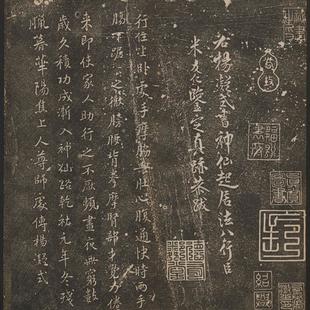 右楊凝式書神仙起居法八行臣
米友仁鑒定真跡恭跋
行住坐卧處手摩脇與肚心腹通快時兩手
腸下踞々之徹膀腰背拳摩腎部才覺力倦
來即使家人助行之不厭頻晝夜無窮數
歲久積功成漸入神仙路乾祐元年冬殘
臘暮華陽焦上人尊師處傳楊凝式